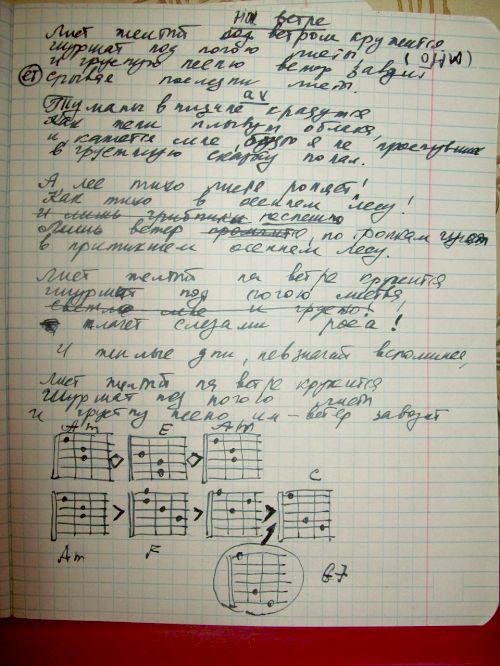 на ветре
Лист желтый под ветром кружится
шуршат под ногою листы, (они)
и грустную песню ветер заводит
ет срывая последний лист.
Туманы в низине крадутся
ау
Как тени плывут облака,
и кажется мне, будто я не проснувшись
в грустную сказку попал.
А лес тихо листья роняет!
Как тихо в осеннем лесу!
и лишь грибники неспешно
Лишь ветер по рощам гуляет
в притихшем осеннем лесу.
Лист желтый на ветре кружится
Шуршат под ногою листья,
светло мне и грустно!
плачет слезами роса!
И теплые дни, невзначай вспоминая,
Лист желтый на ветре кружится
Шуршат под ногою листы
и грустну песню им - ветер заводит
Am E Am
C
Am F
G7